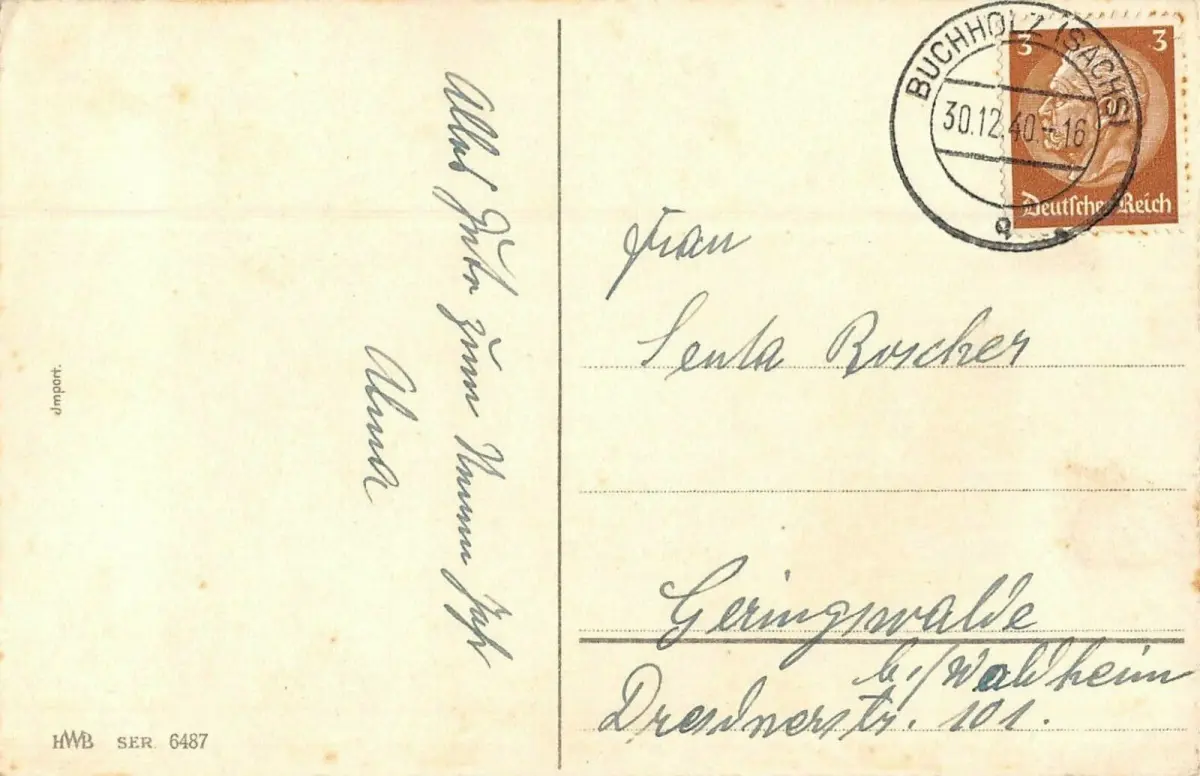 Alles Gute zum Neuen Jahr
Alma
Import.
HWB SER. 6487
BUCHHOLZ (SACHS)
30.12.40.-16
a
3 3
Deutsches Reich
Frau
Senta Roscher
Geringswalde
b./Waldheim
Dresdnerstr. 101.